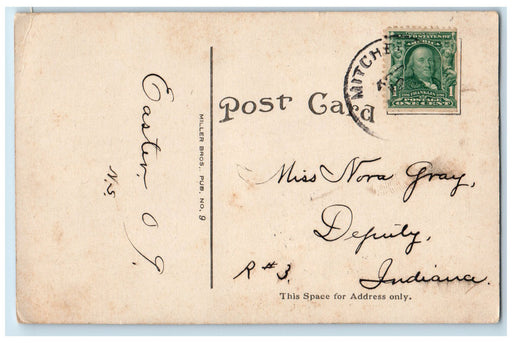 Easter. 09.
N.S
MILLER BROS., PUB. NO. 9
Post Card
MITCHE
OF AMERICA
ONE CENT
Miss Nora Gray,
Deputy,
R#3. Indiana.
This Space for Address only.